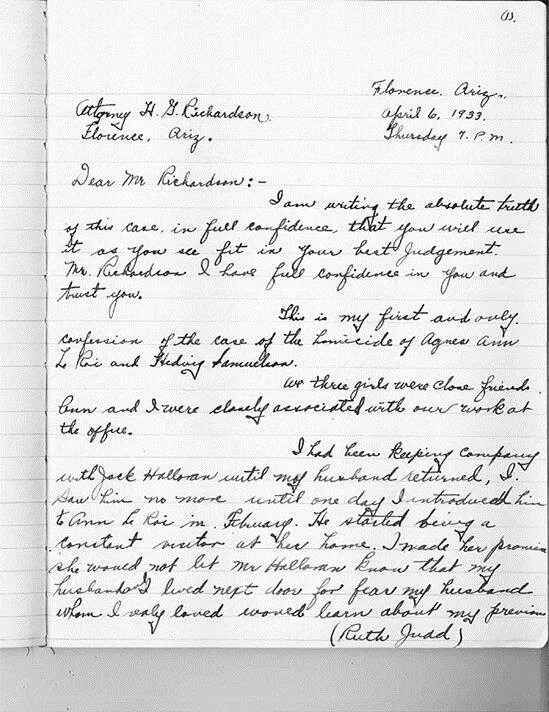 (1).
Florence, Ariz.
Attorney H. G. Richardson. April 6, 1933.
Florence, Ariz. Thursday 7. P.M.
Dear Mr Richardson:-
I am writing the absolute truth
of this case, in full confidence, that you will use
it as you see fit in your best Judgement.
Mr. Richardson I have full confidence in you and
trust you.
This is my first and only
confession of the case of the homicide of Agnes Ann
Le Roi and Hedvig Samuelson.
We three girls were close friends
Ann and I were closely associated with our work at
the office.
I had been keeping company
with Jack Halloran until my husband returned, I
saw him no more until one day I introduced him
to Ann Le Roi in Febuary. He started being a
constant visitor at her home. I made her promise
she would not let Mr Halloran know that my
husband & I lived next door for fear my husband
whom I realy loved would learn about my previous
(Ruth Judd)